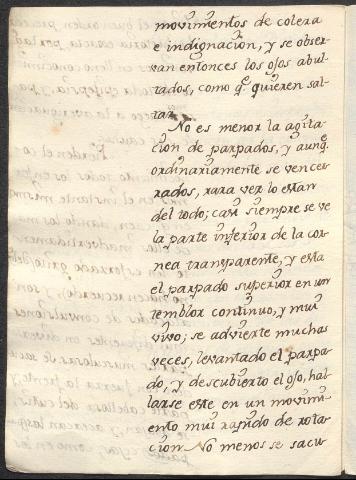 movimientos de colera
e indignacion, y se obser-
van entonces los ojos abul-
tados, como qe quieren sal-
tar.
No es menor la agita-
cion de parpados, y aunqe
ordinariamente se ven cer-
rados, rara vez lo estan
del todo; casi siempre se ve
la parte inferior de la cor-
nea transparente, y esta
el parpado superior en un
temblor continuo, y mui
vivo; se advierte muchas
veces, levantado el parpa-
do, y descubierto el ojo, hal-
larse este en un movimi-
ento mui rapido de rota-
cion. No menos se sacu-